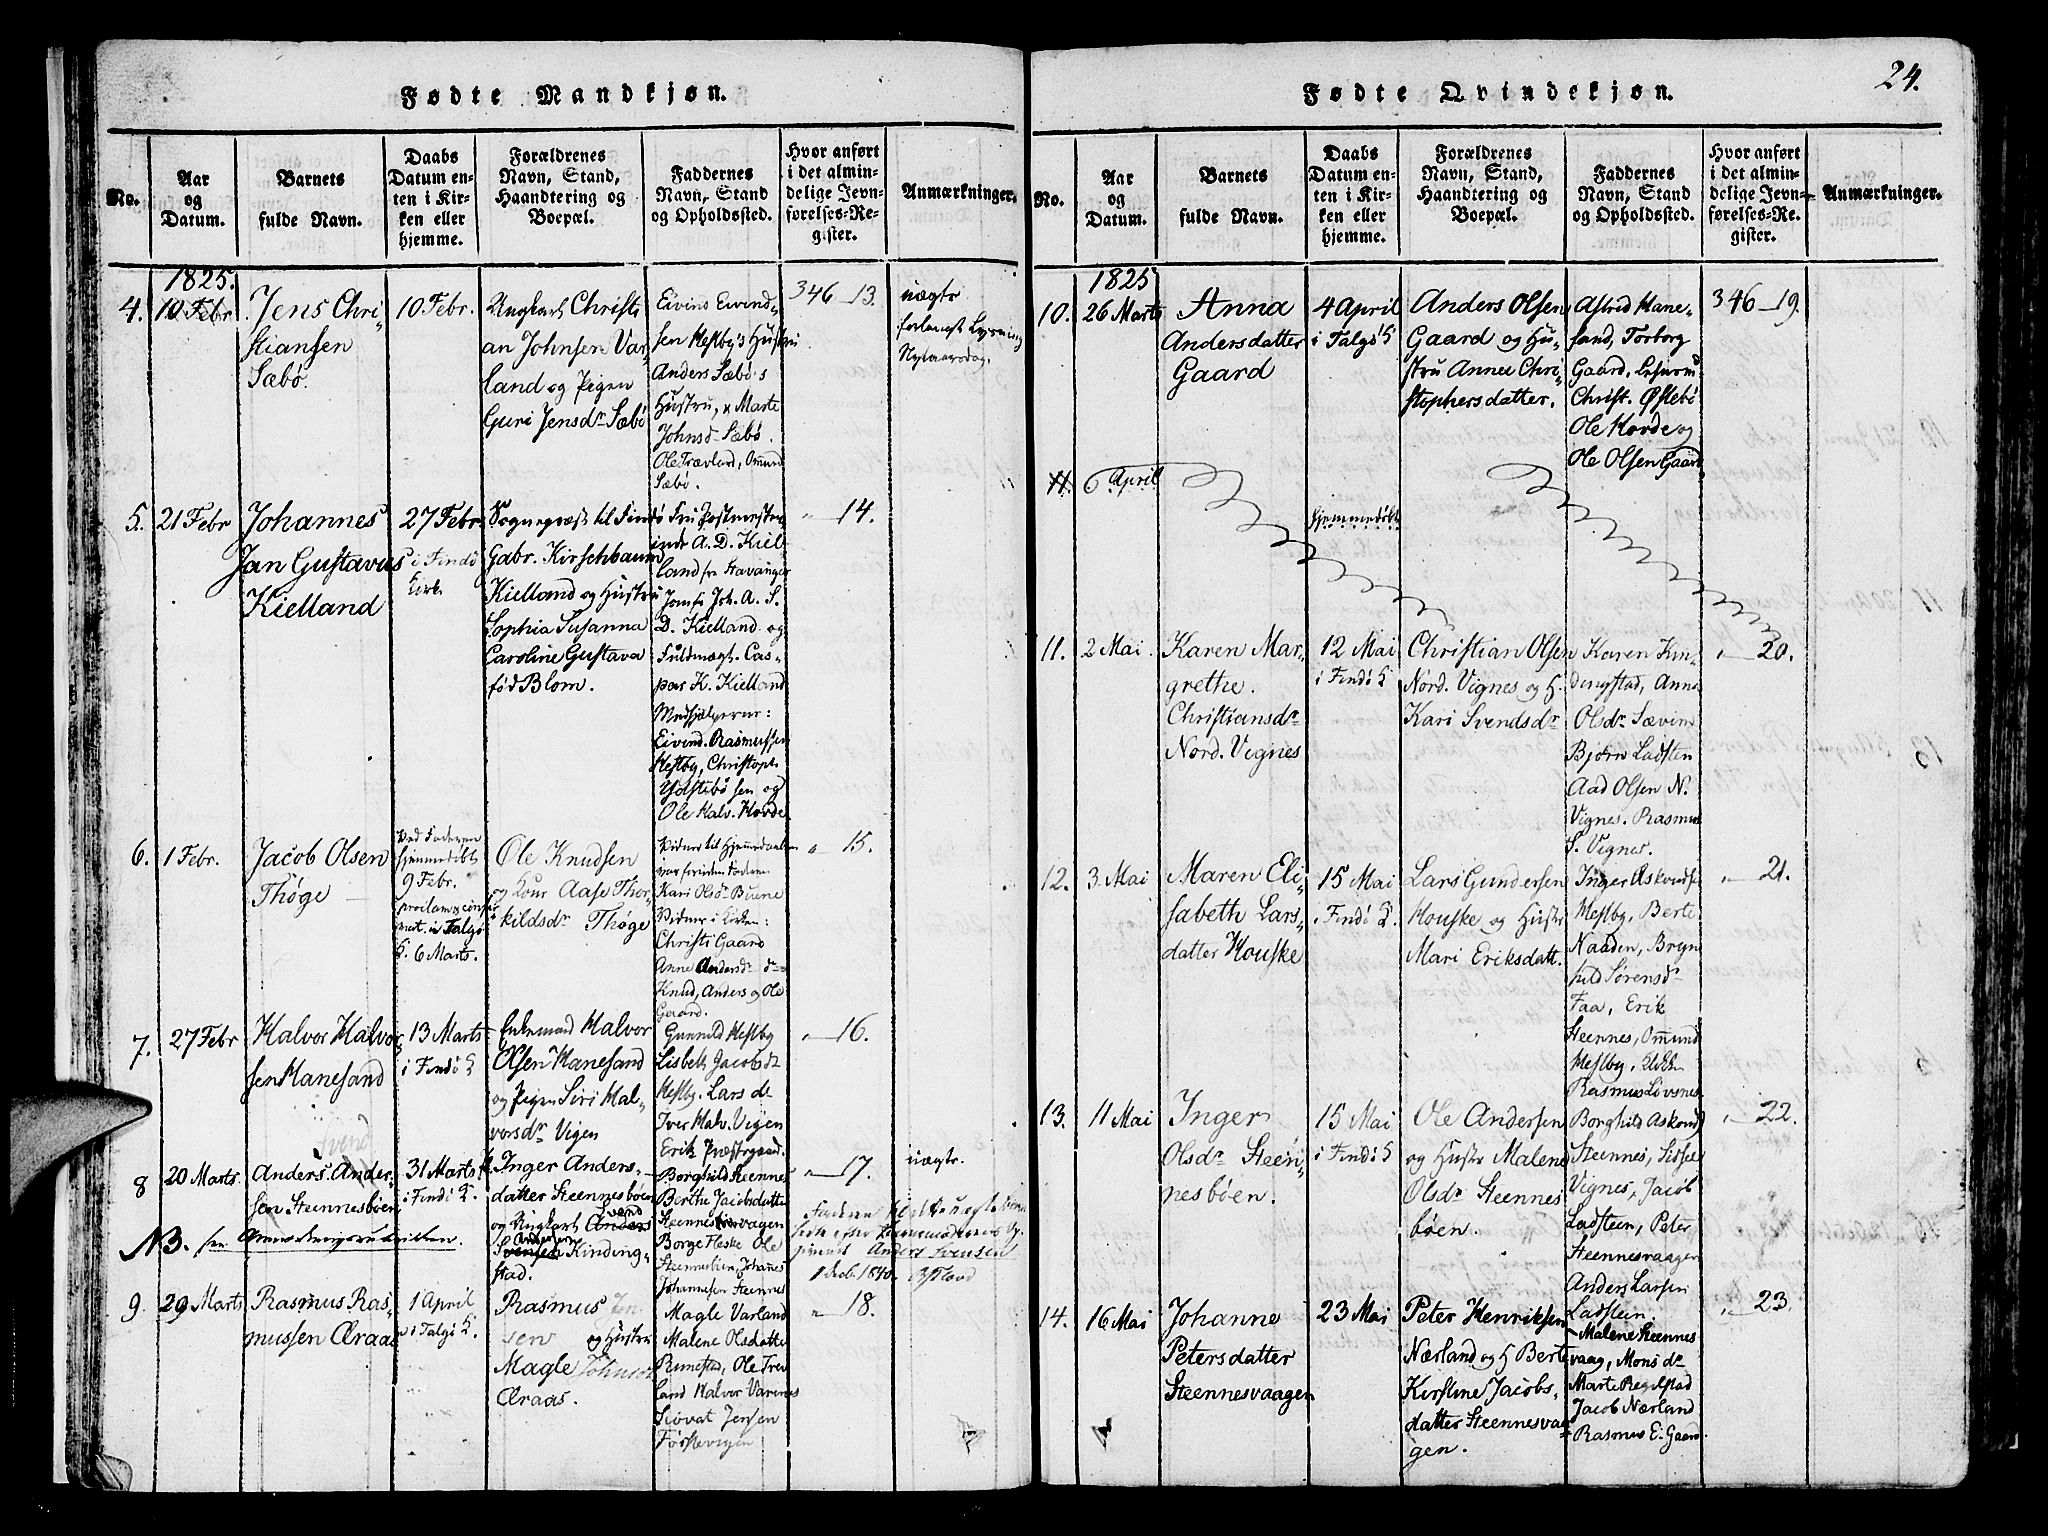 Fødte Mandkjøn.
No.
Aar
og
Datum.
Barnets
fulde Navn.
Daabs
Datum en-
ten i Kir-
ken eller
hjemme.
Forældrenes
Navn, Stand,
Haandtering og
Boepæl.
Faddernes
Navn, Stand
og Opholdssted.
Hvor anført
i det almin-
delige Jevn-
førelses-Re-
gister.
Anmærkninger.
1825.
4.
10 Febr
Jens Chri-
stiansen
Sæbø.
10 Febr.
Ungkarl Christi
an Johnsen Var-
land og Pigen
Guri Jensdr Sæbø
Eivind Eivind-
sen Hestby's Hustru
Anders Sæbø's
Hustru, Marte
Johnsd Sæbø.
Ole Trævland, Omund
Sæbø.
346-13.
uægte
Nytaarsdag.
5.
21 Febr
Johannes
Jan Gustavus
Kielland
27 Febr.
i Findö
Kirk
Sognepræst til Findö
Gabr. Kirschbaum
Kielland og Hustru
Sophia Susanna
Caroline Gustava
fød Blom.
Fru Postmester
inde A. D. Kiel-
land fra Stavanger
Jomfr Joh. A. S.
D. Kielland og
Fuldmægt. Cas-
par K. Kielland
Medhjælperne:
Eivind Rasmussen
Hestby, Christoph
Ydstebø sen og
Ole Halv. Horde
" 14.
6.
1 Febr.
Jacob Olsen
Thøge
Ved Faderen
hjemmedöbt
9 Febr.
i Talgö
K. 6 Marts.
Ole Knudsen
og Kone Aase Thor-
kildsdr Thøge
Vidner til Hjemmedaaben
var foruden Faderen
Kari Olsdr Buene
Vidner i Kirken:
Christi Gaard
Anne Andersdr do
Knud, Anders og Ole
Gaard.
" 15.
7.
27 Febr
Halvor Halvor
sen Hanesand
13 Marts
i Findö K
Enkemand Halvor
Olsen Hanesand
og Pigen Siri Hal-
vorsdr Vigen
Gunnild Hestby
Lisbeth Jacobsdr
Hestby. Lars do
Iver Halv. Vigen
Erik Præstegaard.
" 16.
8
20 Marts.
Anders Ander-
sen Steennesbøen
31 Marts
i Findö K.
Inger Anders-
datter Steennesbøen
og Ungkarl Anders
Svend
Svensen Kinding-
Andersen
stad.
Borghild Steennes
Berthe Jacobsdatter
Steennesvaagen
Børge Fleske Ole
Steennesbøen, Johanes
Johannesen Steennes
" 17.
uægte.
Anders Svensen
1840.
NB.
9.
29 Marts
Rasmus Ras-
mussen Æraas
1 April
i Talgö K.
Rasmus Jen-
sen og Hustru
Magle Johnsdr
Æraas.
Magle Varland
Malene Olsdatter
Rimestad, Ole Træv
land Halvor Varenes
Siovat Jensen
Førstevigen
" 18.
24.
Fødte Qvindekjøn.
No.
Aar
og
Datum.
Barnets
fulde Navn.
Daabs
Datum en-
ten i Kir-
ken eller
hjemme.
Forældrenes
Navn, Stand,
Haandtering og
Boepæl.
Faddernes
Navn, Stand
og Opholdssted.
Hvor anført
i det almin-
delige Jevn-
førelses-Re-
gister.
Anmærkninger.
1825
10.
26 Marts
Anna
Andersdatter
Gaard
4 April
i Talgö K
Anders Olsen
Gaard og Hu-
stru Anna Chri-
stophersdatter.
Astrid Hane-
sand, Torborg
Gaard,
Christ. Østebö
Ole Horde og
Ole Olsen Gaard
346-19.
11.
6 April
hjemmedöbt
11.
2 Mai.
Karen Mar-
grethe.
Christiansdr
Nord. Vignes
12 Mai
i Findö K
Christian Olsen
Nord. Vignes og H.
Kari Svendsdr
Karen Kin-
dingstad, Anna
Olsdr Sævim
Bjørn Ladsten
Aad Olsen N.
Vignes. Rasmus
S. Vignes.
" 20.
12.
3 Mai
Maren Eli-
sabeth Lars-
datter Houske
15 Mai
i Findö K.
Lars Gundersen
Houske og Hustr
Mari Eriksdatt.
Inger Askoudsr
Hestby, Berte
Naaden, Bryn
hild Sørensdr
Faa, Erik
Steennes, Omund
Hestby,
Rasmus Livsnes
" 21.
13.
11 Mai
Inger
Olsdr Steen-
nesbøen.
15 Mai
i Findö K
Ole Andersen
og Hustr Malene
Olsdr Steennes
bøen.
Borghild Askoudr
Steennes, Sidsel
Vignes, Jacob
Ladsteen, Peter
Steennesvaagen
Anders Larsen
Ladsteen.
" 22.
14.
16 Mai
Johanne
Petersdatter
Steennesvaagen
23 Mai
Peter Henriksen
Nærland og H Berte
Kirstine Jacobs-
datter Steennesvaa-
gen.
Malene Steennes
vaag, Mons dr
Marte Regelstad
Jacob Nærland
Rasmus E. Gaard.
" 23.